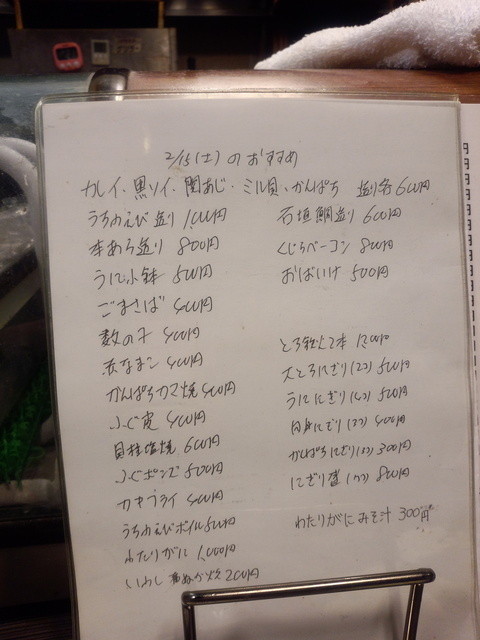 2/15(土)のおすすめ
カレイ、黒ソイ、関あじ、ミル貝、かんぱち 造り各600円
うちわえび造り 1,000円
本あら造り 800円
うに小鉢 500円
ごまさば 400円
数の子 400円
赤なまこ 400円
かんぱちカマ焼 400円
ふぐ皮 400円
貝柱塩焼 600円
ふぐポンズ 500円
カキフライ 400円
うちわえびボイル 500円
わたりがに 1,000円
いわしぬか炊 200円
石垣鯛造り 600円
くじらベーコン 800円
おばいけ 500円
とろ鉄火2本
大とろにぎり(2コ) 500円
うににぎり 500円
白身にぎり 400円
かんぱちにぎり 300円
にぎり盛 800円
わたりがにみそ汁 300円